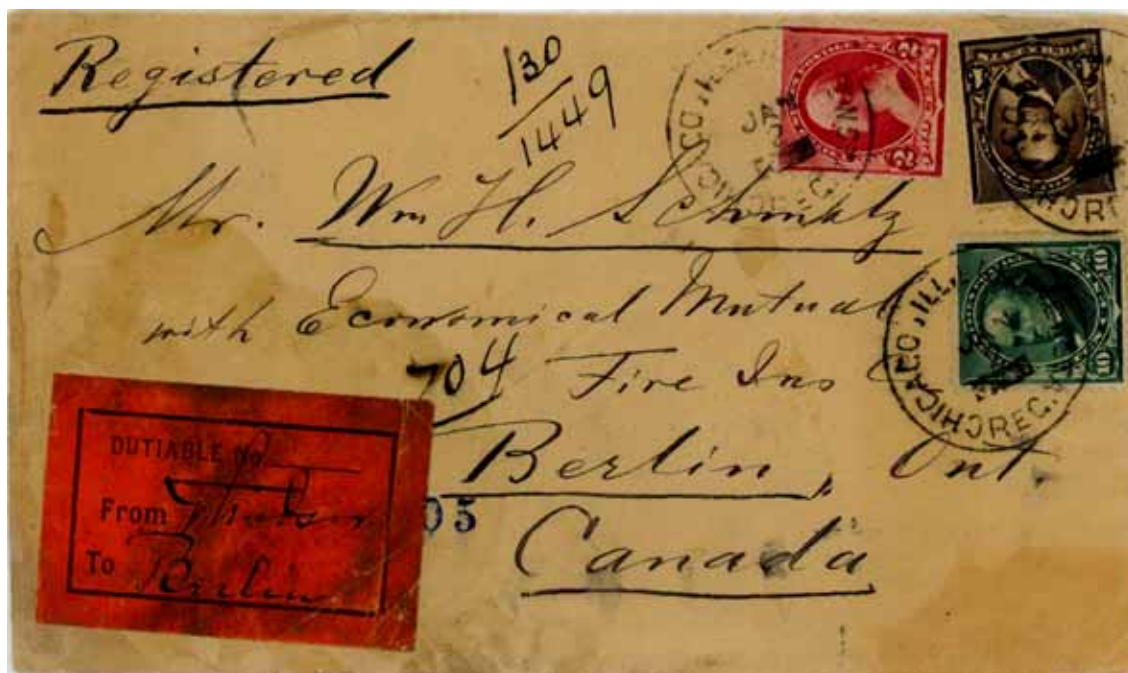 Registered
130
1449
CHICAGO, ILL.
REC.
2 2
4 4
Mr. Wm H. Schmalz
with Economical Mutual
704 Fire Ins Co
10 10
CHICAGO, ILL.
REC.
Berlin, Ont.
Canada
05
DUTIABLE No.
From Windsor
To Berlin